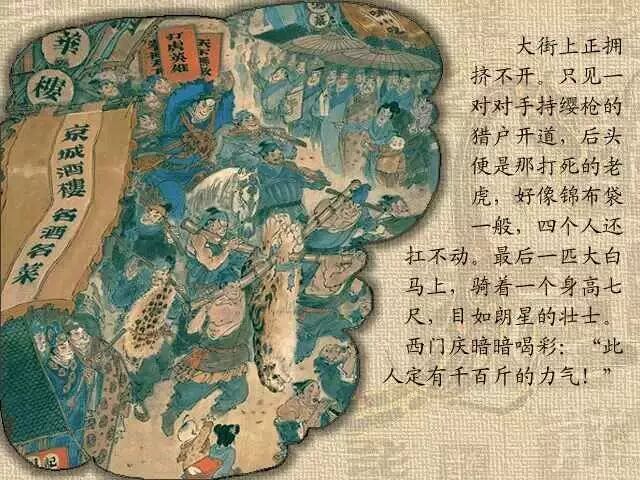 華
樓
打虎英雄
京城酒樓
名酒名菜
大街上正拥
挤不开。只见一
对对手持缨枪的
猎户开道，后头
便是那打死的老
虎，好像锦布袋
一般，四个人还
扛不动。最后一匹大白
马上，骑着一个身高七
尺，目如朗星的壮士。
西门庆暗暗喝彩：“此
人定有千百斤的力气！”